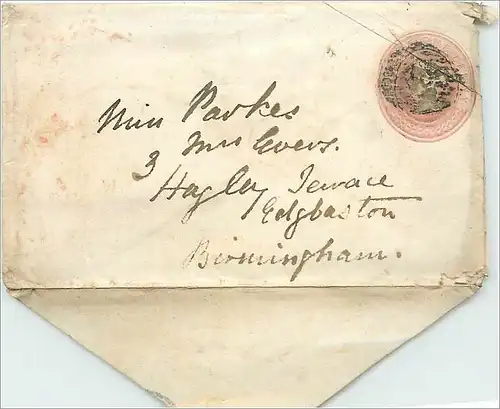 Miss Parkes
Mrs Evers.
3
Hagley Terrace
Edgbaston
Birmingham.